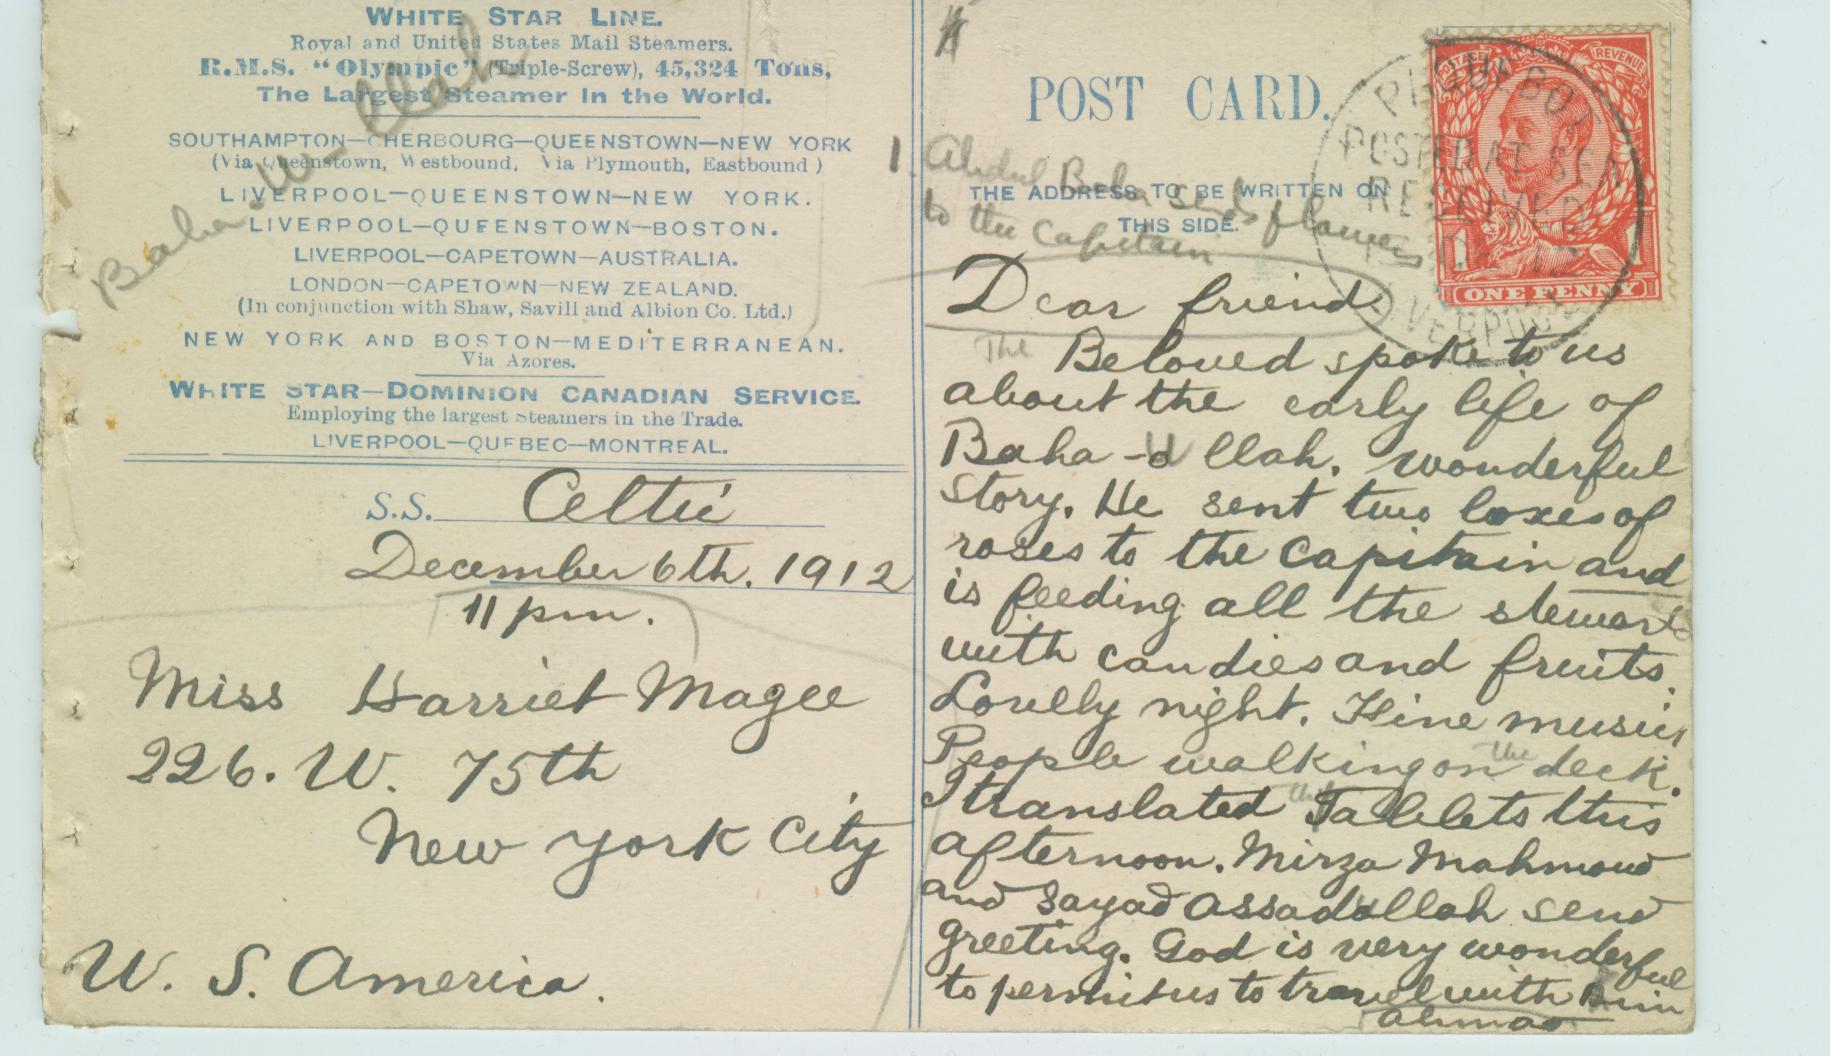 WHITE STAR LINE.
Royal and United States Mail Steamers.
R.M.S. "Olympic" (Triple-Screw), 45,324 Tons,
The Largest Steamer in the World.
SOUTHAMPTON—CHERBOURG—QUEENSTOWN—NEW YORK
(Via Queenstown, Westbound, Via Plymouth, Eastbound)
LIVERPOOL—QUEENSTOWN—NEW YORK.
LIVERPOOL—QUEENSTOWN—BOSTON.
LIVERPOOL—CAPETOWN—AUSTRALIA.
LONDON—CAPETOWN—NEW ZEALAND.
(In conjunction with Shaw, Savill and Albion Co. Ltd.)
NEW YORK AND BOSTON—MEDITERRANEAN.
Via Azores.
WHITE STAR—DOMINION CANADIAN SERVICE.
Employing the largest Steamers in the Trade.
LIVERPOOL—QUEBEC—MONTREAL.
Baha-u-llah
S.S. Celtic
December 6th. 1912
11 pm.
Miss Harriet Magee
226. W. 75th
New York City
U. S. America.
POST CARD.
THE ADDRESS TO BE WRITTEN ON
THIS SIDE.
1. Abdul Baha sends flowers
to the Capitain
POSTAGE REVENUE
ONE PENNY
PAQUEBOT
POSTED AT SEA
RECEIVED
12
LIVERPOOL
Dear friend
The Beloved spoke to us
about the early life of
Baha-U llah. wonderful
story. He sent two boxes of
roses to the Capitain and
is feeding all the stewarts
with candies and fruits.
Lovely night. Fine music,
People walking on the deck.
I translated the Tablets this
afternoon. Mirza Mahmoud
and Sayad Assadullah send
greeting. God is very wonderful
to permit us to travel with Him
Ahmad